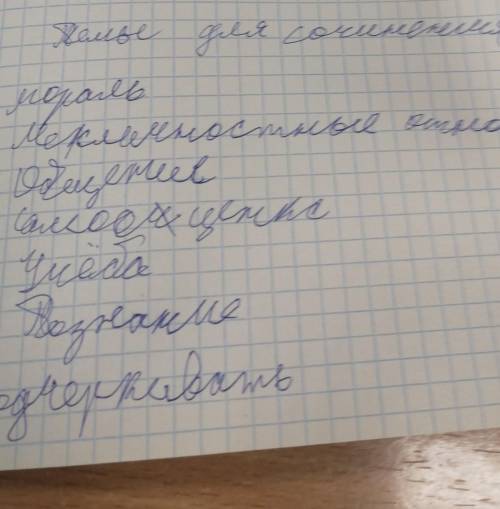 Темы для сочинения
мораль
Межличностные отно
Общение
самооценка
Учёба
Познание
одчеркивать